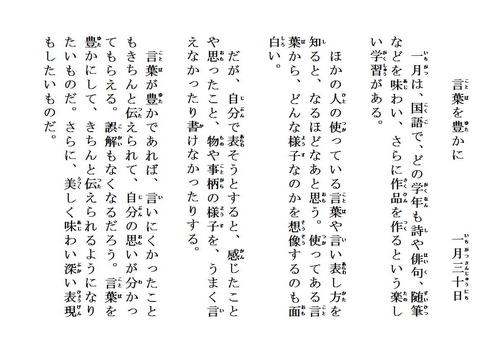 言葉を豊かに　一月三十日
一月は、国語で、どの学年も詩や俳句、随筆
などを味わい、さらに作品を作るという楽し
い学習がある。
ほかの人の使っている言葉や言い表し方を
知ると、なるほどなあと思う。使ってある言
葉から、どんな様子なのかを想像するのも面
白い。
だが、自分で表そうとすると、感じたこと
や思ったこと、物や事柄の様子を、うまく言
えなかったり書けなかったりする。
言葉が豊かであれば、言いにくかったこと
もきちんと伝えられて、自分の思いが分かっ
てもらえる。誤解もなくなるだろう。言葉を
豊かにして、きちんと伝えられるようになり
たいものだ。さらに、美しく味わい深い表現
もしたいものだ。